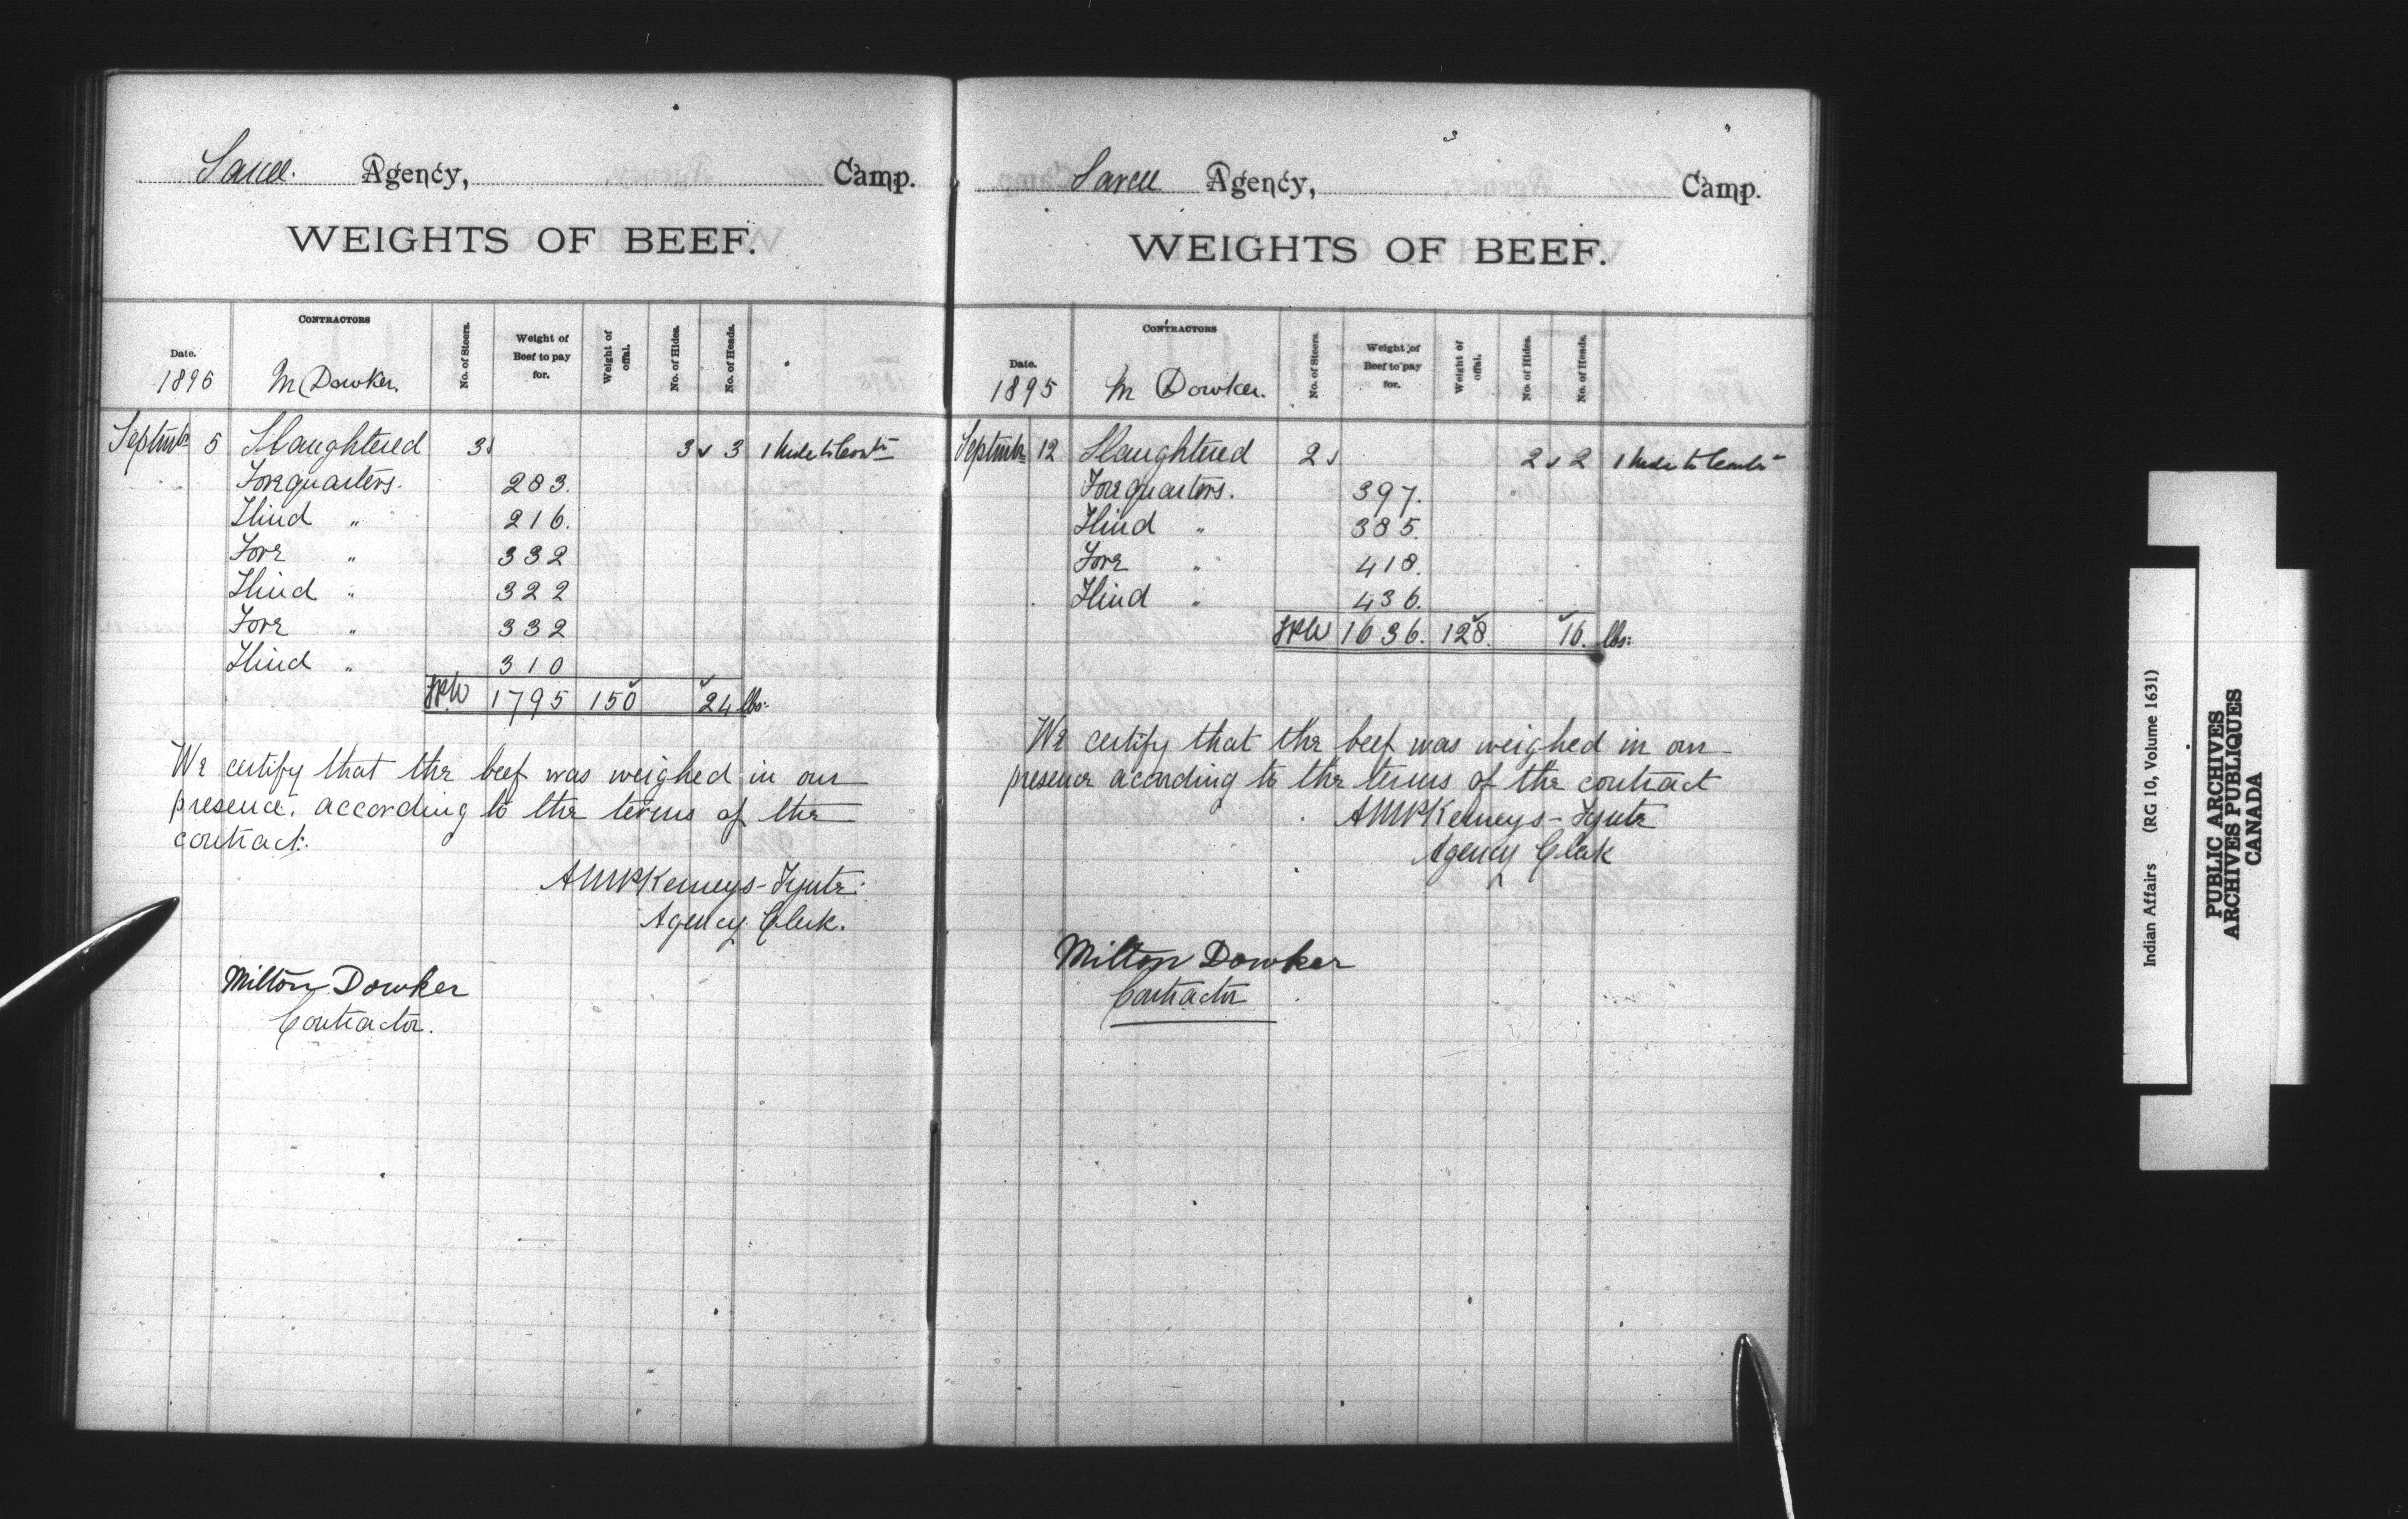 Sarcee Agency, Camp.
WEIGHTS OF BEEF.
Date. CONTRACTORS No. of Steers. Weight of Beef to pay for. Weight of offal. No. of Hides. No. of Heads.
1895 M Dowker.
Septmbr 5 Slaughtered 3 3 3 1 hide to Contr
Forequarters. 283.
Hind " 216.
Fore " 332
Hind " 322
Fore " 332
Hind " 310
1795 150 24 lbs:
We certify that the beef was weighed in our
presence, according to the terms of the
contract:
AMPKemeys-Tynte:
Agency Clerk.
Milton Dowker
Contractor.
Sarcee Agency, Camp.
WEIGHTS OF BEEF.
Date. CONTRACTORS No. of Steers. Weight of Beef to pay for. Weight of offal. No. of Hides. No. of Heads.
1895 M Dowker.
Septmbr 12 Slaughtered 2 2 2 1 hide to Contr
Forequarters. 397.
Hind " 385.
Fore " 418.
Hind " 436.
1636. 128. 16. lbs:
We certify that the beef was weighed in our
presence according to the terms of the contract
AMPKemeys-Tynte
Agency Clerk
Milton Dowker
Contractor
Indian Affairs (RG 10, Volume 1631)
PUBLIC ARCHIVES
ARCHIVES PUBLIQUES
CANADA